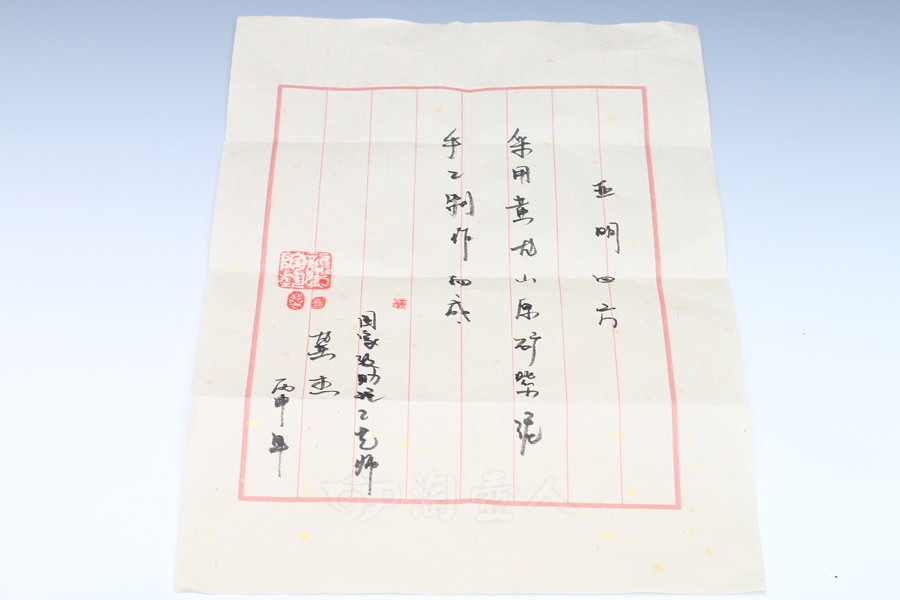 亚明四方
采用黄龙山原矿紫泥
手工制作而成
国家级助理工艺师
龚杰
丙申年
淘壶人